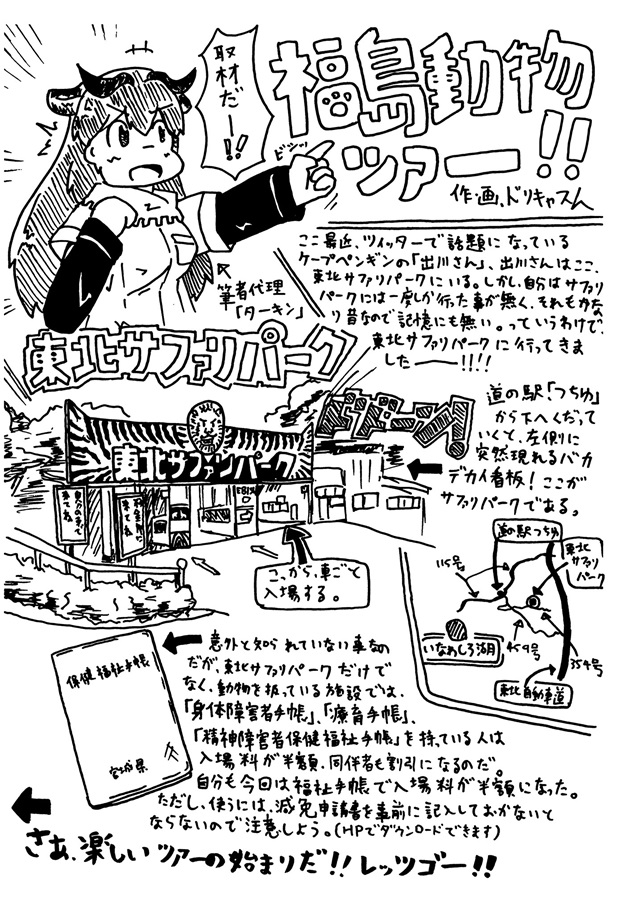 福島動物
ツァー!!
作・画、ドリキャスん
取材だー!!
ビシッ
筆者代理
「ターキン」
ここ最近、ツイッターで話題になっている
ケープペンギンの「出川さん」、出川さんはここ、
東北サファリパークにいる。しかし、自分はサファリ
パークには一度しか行った事が無く、それもかな
り昔なので記憶にも無い。っていうわけで、
東北サファリパークに行ってきま
したー――!!!!
東北サファリパーク
ババーン!
東北サファリパーク
道の駅「つちゆ」
から下へくだって
いくと、左側に
突然現れるバカ
デカイ看板!ここが
サファリパークである。
ここから、車ごと
入場する。
道の駅つちゆ
東北
サファリ
パーク
115号
いなわしろ湖
459号
354号
東北自動車道
保健福祉手帳
宮城県
意外と知られていない事なの
だが、東北サファリパークだけで
なく、動物を扱っている施設では、
「身体障害者手帳」、「療育手帳」、
「精神障害者保健福祉手帳」を持っている人は
入場料が半額、同伴者も割引になるのだ。
自分も今回は福祉手帳で入場料が半額になった。
ただし、使うには、減免申請書を事前に記入しておかないと
ならないので注意しよう。(HPでダウンロードできます)
さあ、楽しいツアーの始まりだ!!レッツゴー!!